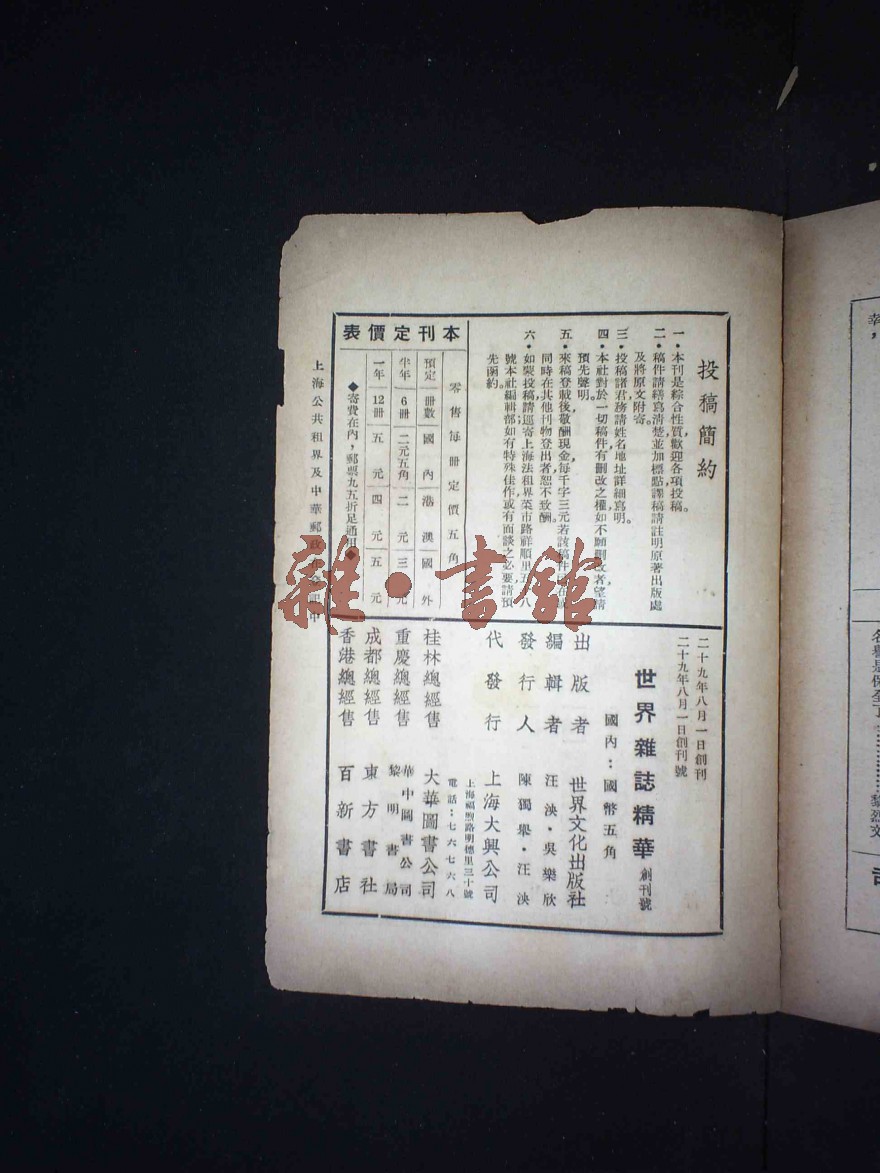 投稿簡約
一・本刊是綜合性質歡迎各項投稿。
二・稿件請繕寫清楚並加標點譯稿請註明原著出版處
及將原文附寄。
三・投稿諸君務請姓名地址詳細寫明。
四・本社對於一切稿件有刪改之權如不願刪改者望請
預先聲明。
五・來稿登載後，敬酬現金，每千字三元若該稿件
同時在其他刊物登出者恕不致酬。
六・如蒙投稿，請逕寄上海法租界菜市路祥順里五八
號本社編輯部如有特殊佳作或有面談之必要請預
先函約。
本刊定價表
零售每冊定價五角
預定 冊數 國內 港澳 國外
半年 6冊 二元五角 二元 三元
一年 12冊 五元 四元 五元
◆寄費在內，郵票九五折足通用◆
上海公共租界及中華郵政
二十九年八月一日創刊
二十九年八月一日創刊號
世界雜誌精華 創刊號
國內：國幣五角
出版者 世界文化出版社
編輯者 汪泱・吳樂欣
發行人 陳獨舉・汪泱
代發行 上海大興公司
上海福煦路明德里三十號
電話：七六七六八
桂林總經售 大華圖書公司
重慶總經售 華中圖書公司
黎明書局
成都總經售 東方書社
香港總經售 百新書店
雜・書館